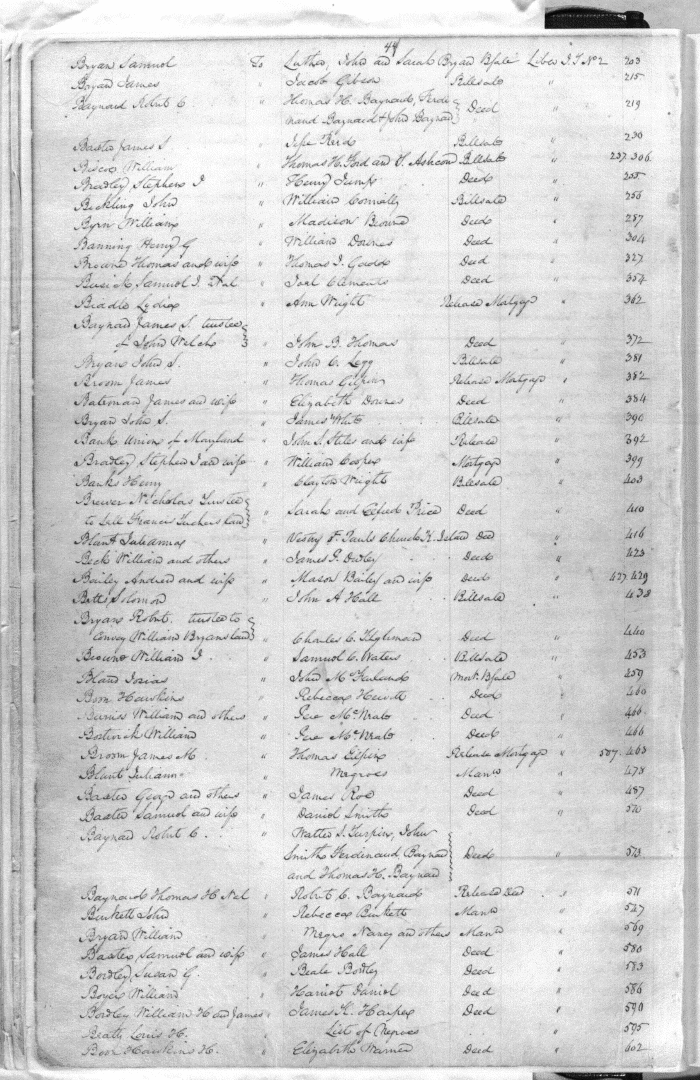 44
Bryan Samuel To Luther, John and Sarah Bryan Bsale Liber J T No 2 203
Bryan James " Jacob Gibson Billsale " 215
Baynard Robert C " Thomas H. Baynard, Ferdi
nand Baynard & John Baynard Deed " 219
Baxter James S. " Billsale " 230
Biscoe William " Thomas H. Ford and Billsale " 237. 306
Bradley Stephen J " Henry Jump Deed " 255
John " William Connolly Billsale " 256
Byrn William " Madison Browne Deed " 287
Banning Henry G " William Downes Deed " 304
Browne Thomas and wife " Thomas J. Gadd Deed " 327
Samuel T. Clements Deed " 354
Biddle Lydia " Ann Wright Release Mortgage " 362
Baynard James S. trustee
of John Welch " John B. Thomas Deed " 372
Bryan John S. " John C. Legg Billsale " 381
Broom James " Thomas Gilpin Release Mortgage " 382
Bateman James and wife " Elizabeth Downes Deed " 384
Bryan John S. " James White Billsale " 390
Bank Union of Maryland " John S. Stiles and wife Release " 392
Bradley Stephen J and wife " William Cooper Mortgage " 399
Banks Henry " Clayton Wright Billsale " 403
Brewer Nicholas Trustee
to Sell Francis Tuckers land " Sarah and Price Deed " 410
Blunt Julianna " Vestry St. Pauls Church K. Island Deed " 416
Beck William and others " James G. Deed " 423
Bailey Andrew and wife " Mason Bailey and wife Deed " 427. 429
Betts Solomon " John A Hall Billsale " 438
Bryan Robert. trustee to
Convey William Bryans land " Charles C. Tilghman Deed " 440
Browne William J. " Samuel C. Waters Billsale " 453
Bland Josias " John M. Mort. Bsale " 459
Bom Hawkins " Rebecca Hewitt Deed " 460
William and others " Deed " 466
Bostwick William " Deed " 466
Broom James M. " Thomas Gilpin Release Mortgage " 507. 463
Blunt Juliann " Negroes Mans " 473
Baxter George and others " James Roe Deed " 487
Baxter Samuel and wife " Daniel Smith Deed "
Baynard Robert C. " Walter S. Turpin, John
Smith Ferdinand Baynard
and Thomas H. Baynard Deed " 513
Baynard Thomas H. " Robert C. Baynard Release Deed "
Burkett John " Rebecca Burkett Mans " 547
Bryan William " Negro Nancy and others Mans " 569
Baxter Samuel and wife " James Hall Deed " 580
Bordley Susan G. " Beale Bordley Deed " 583
Boyer William " Harriot Daniel Deed " 586
Bordley William H and James " James K. Harper Deed " 590
Beatty Louis H. " List of Negroes " 595
Boon Hawkins H. " Elizabeth Warner Deed " 602